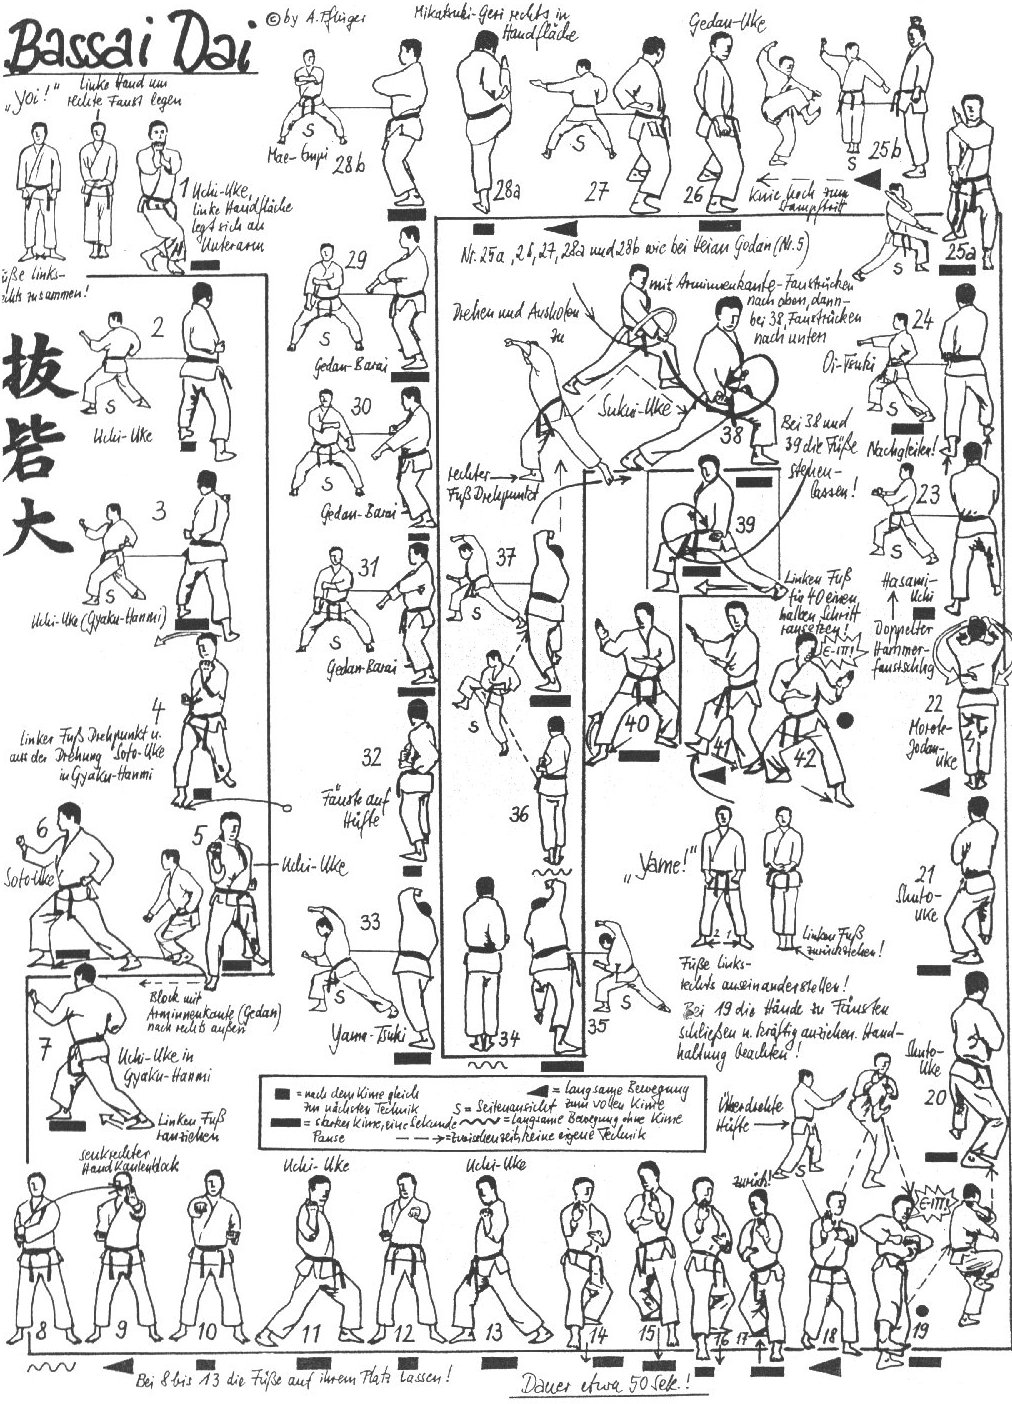 Bassai Dai
© by A. Pflüger
„Yoi!"
linke Hand um
rechte Faust legen
1 Uchi-Uke,
linke Handfläche
legt sich an
Unterarm
üße links-
chts zusammen!
抜
砦
大
2
S
Uchi-Uke
3
S
Uchi-Uke (Gyaku-Hanmi)
4
Linker Fuß Drehpunkt u.
aus der Drehung Soto-Uke
in Gyaku-Hanmi
5
Uchi-Uke
6
Soto-Uke
Block mit
Arminnenkante (Gedan)
nach rechts außen
7
Uchi-Uke in
Gyaku-Hanmi
Linken Fuß
ranziehen
senkrechter
Handkantenblock
8
9
10
Uchi-Uke
11
12
Uchi-Uke
13
14
15
16
zurück!
17
18
S
Überdrehte
Hüfte
19
E-ITT!
Bei 8 bis 13 die Füße auf ihrem Platz lassen!
Dauer etwa 50 Sek.!
20
Shuto-
Uke
21
Shuto-
Uke
22
Morote-
Jodan-
Uke
23
S
Hasami-
Uchi
Doppelter
Hammer-
faustschlag
24
Oi-Tsuki
S
Nachgleiten!
25a
S
25b
S
Knie hoch zum
Stampftritt
Gedan-Uke
26
27
S
Mikatsuki-Geri rechts in
Handfläche
28a
S
Mae-Empi
28b
Nr. 25a, 26, 27, 28a und 28b wie bei Heian Godan (Nr. 5)
29
S
Gedan-Barai
30
S
Gedan-Barai
31
S
Gedan-Barai
32
Fäuste auf
Hüfte
33
S
Yama-Tsuki
34
35
S
36
37
S
rechter
Fuß Drehpunkt
Drehen und Ausholen
zu
mit Arminnenkante-Faustrücken
nach oben, dann
bei 38, Faustrücken
nach unten
Sukui-Uke
38
Bei 38 und
39 die Füße
stehen-
lassen!
39
Linken Fuß
für 40 einen
halben Schritt
ransetzen!
40
41
42
E-ITT!
„Yame!"
2 1
Linken Fuß
zurückstehen!
Füße links-
rechts auseinanderstellen!
Bei 19 die Hände zu Fäusten
schließen u. kräftig anziehen. Hand-
haltung beachten!
= nach dem Kime gleich
zur nächsten Technik
= starkes Kime, eine Sekunde
Pause
= langsame Bewegung
zum vollen Kime
S = Seitenansicht
= langsame Bewegung ohne Kime
= Zwischenzeit, keine eigene Technik